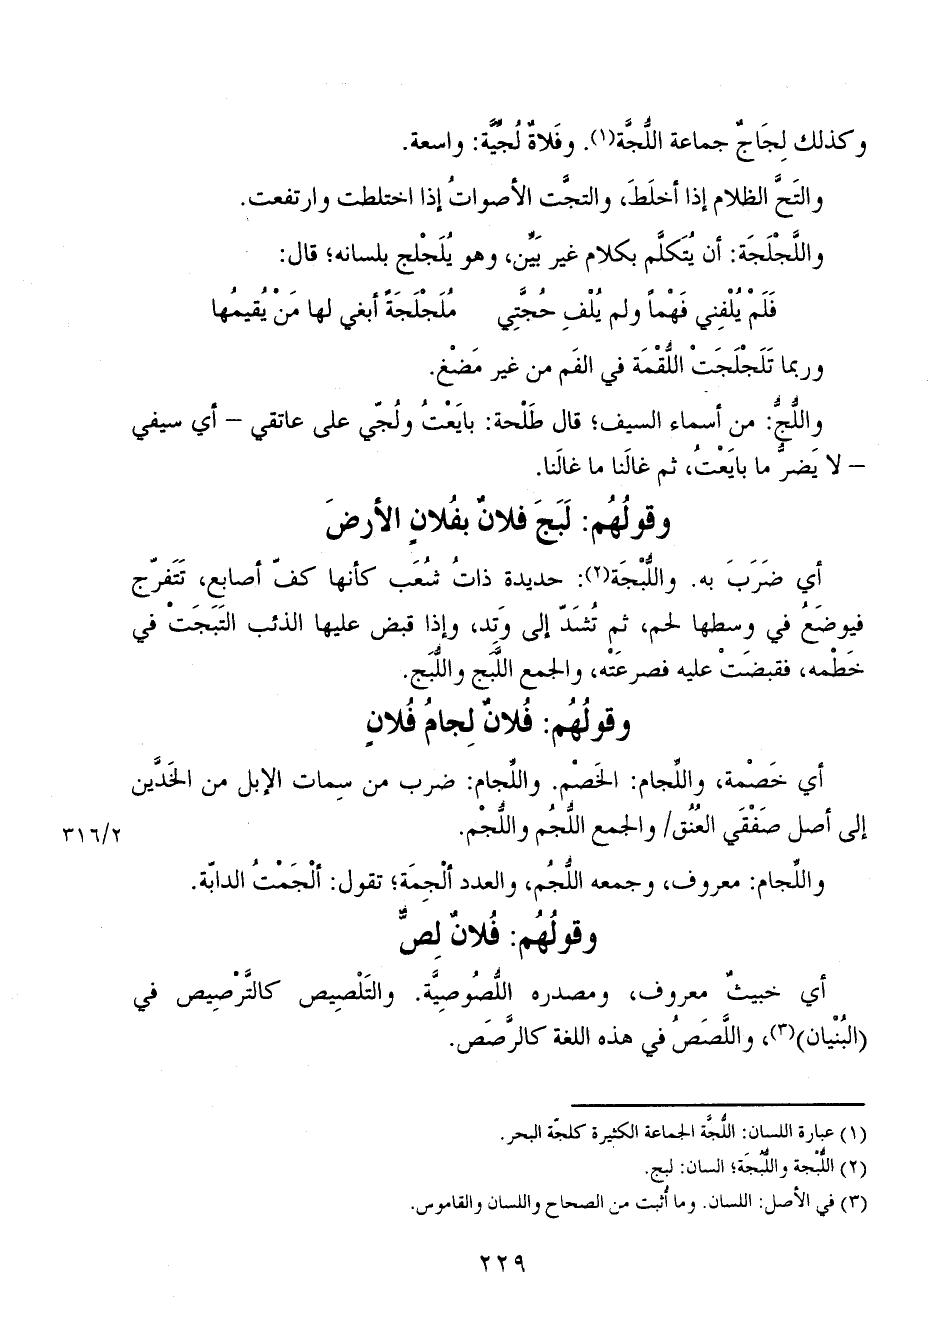 وكذلك لِجَاجٌ جماعة اللُّجَّة(١). وفَلاةٌ لُجِّيَّة: واسعة.
والتَجَّ الظلام إذا أخلَطَ، والتجَّت الأصواتُ إذا اختلطت وارتفعت.
واللَّجْلَجَة: أن يُتَكلَّم بكلام غير بَيِّن، وهو يُلَجْلج بلسانه؛ قال:
فَلَمْ يُلْفِني فَهْماً ولم يُلْفِ حُجَّتِي مُلَجْلَجَةً أبغي لها مَنْ يُقيمُها
وربما تَلَجْلَجَتْ اللُّقْمَة في الفَم من غير مَضْغ.
واللُّجُّ: من أسماء السيف؛ قال طَلْحة: بايَعْتُ ولُجّي على عاتقي – أي سيفي
– لا يَضرُّ ما بايَعْتُ، ثم غالَنا ما غالَنا.
وقولُهُم: لَبَجَ فلانٌ بفُلانٍ الأرضَ
أي ضَرَبَ به. واللُّبْجَة(٢): حديدة ذاتُ شُعَب كأنها كفّ أصابع، تَتَفرّج
فيوضَعُ في وسطها لحم، ثم تُشَدّ إلى وَتِد، وإذا قبض عليها الذئب التَبَجَتْ في
خَطْمه، فقبضَتْ عليه فصرعَتْه، والجمع اللَّبَج واللُّبَج.
وقولُهُم: فُلانٌ لِجامُ فُلانٍ
أي خَصْمة، واللِّجام: الخَصْم. واللِّجام: ضرب من سِمات الإبل من الخَدَّين
إلى أصل صَفْقَي العُنُق/ والجمع اللُّجُم واللُّجْم.
٣١٦/٢
واللِّجام: معروف، وجمعه اللُّجُم، والعدد ألْجِمَة؛ تقول: ألْجَمْتُ الدابّة.
وقولُهُم: فُلانٌ لِصٌّ
أي خبيثٌ معروف، ومصدره اللُّصُوصِيَّة. والتَلْصِيص كالتَّرْصِيص في
(البُنْيان)(٣)، واللَّصَصُ في هذه اللغة كالرَّصَص.
(١) عبارة اللسان: اللُّجَّة الجماعة الكثيرة كلجّة البحر.
(٢) اللُّبْجة واللُّبَجَة؛ السان: لبج.
(٣) في الأصل: اللسان. وما أُثبت من الصحاح واللسان والقاموس.
٢٢٩